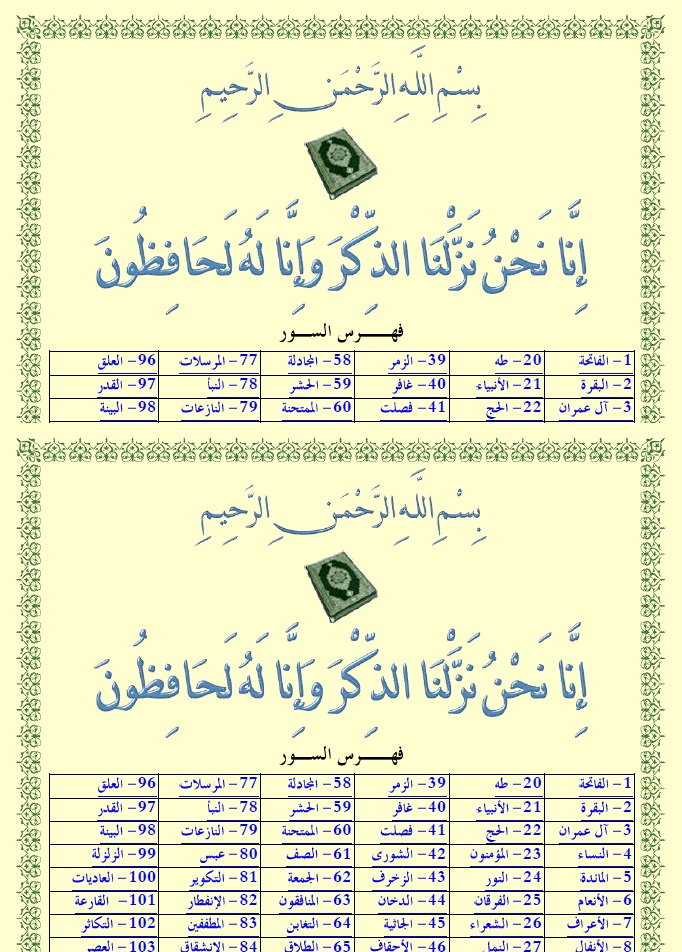 بِسْمِ اللَّهِ الرَّحْمَنِ الرَّحِيمِ
إِنَّا نَحْنُ نَزَّلْنَا الذِّكْرَ وَإِنَّا لَهُ لَحَافِظُونَ
فهـــرس الســـور
1- الفاتحة 20- طه 39- الزمر 58- المجادلة 77- المرسلات 96- العلق
2- البقرة 21- الأنبياء 40- غافر 59- الحشر 78- النبأ 97- القدر
3- آل عمران 22- الحج 41- فصلت 60- الممتحنة 79- النازعات 98- البينة
بِسْمِ اللَّهِ الرَّحْمَنِ الرَّحِيمِ
إِنَّا نَحْنُ نَزَّلْنَا الذِّكْرَ وَإِنَّا لَهُ لَحَافِظُونَ
فهـــرس الســـور
1- الفاتحة 20- طه 39- الزمر 58- المجادلة 77- المرسلات 96- العلق
2- البقرة 21- الأنبياء 40- غافر 59- الحشر 78- النبأ 97- القدر
3- آل عمران 22- الحج 41- فصلت 60- الممتحنة 79- النازعات 98- البينة
4- النساء 23- المؤمنون 42- الشورى 61- الصف 80- عبس 99- الزلزلة
5- المائدة 24- النور 43- الزخرف 62- الجمعة 81- التكوير 100- العاديات
6- الأنعام 25- الفرقان 44- الدخان 63- المنافقون 82- الإنفطار 101- القارعة
7- الأعراف 26- الشعراء 45- الجاثية 64- التغابن 83- المطففين 102- التكاثر
8- الأنفال 27- النمل 46- الأحقاف 65- الطلاق 84- الإنشقاق 103- العصر